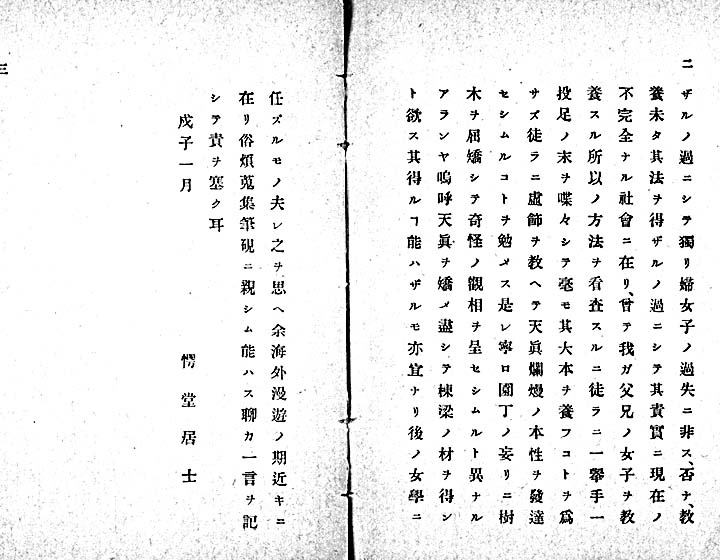 二
ザルノ過ニシテ獨リ婦女子ノ過失ニ非ス、否ナ、教
養未タ其法ヲ得ザルノ過ニシテ其責實ニ現在ノ
不完全ナル社會ニ在リ、曾テ我ガ父兄ノ女子ヲ教
養スル所以ノ方法ヲ看査スルニ徒ラニ一擧手一
投足ノ末ヲ喋々シテ毫モ其大本ヲ養フコトヲ爲
サズ徒ラニ虛師ヲ教ヘテ天眞爛熳ノ本性ヲ發達
セシムルコトヲ勉メス是レ寧ロ園丁ノ妄リニ樹
木ヲ屈矯シテ奇怪ノ觀相ヲ呈セシムルト異ナル
アランヤ嗚呼天眞ヲ矯メ盡シテ棟梁ノ材ヲ得ン
ト欲ス其得ルヿ能ハザルモ亦宜ナリ後ノ女學ニ
三
任ズルモノ夫レ之ヲ思ヘ余海外漫遊ノ期近キニ
在リ俗煩蒐集筆硯ニ親シム能ハス聊カ一言ヲ記
シテ責ヲ塞ク耳
戊子一月
愕堂居士